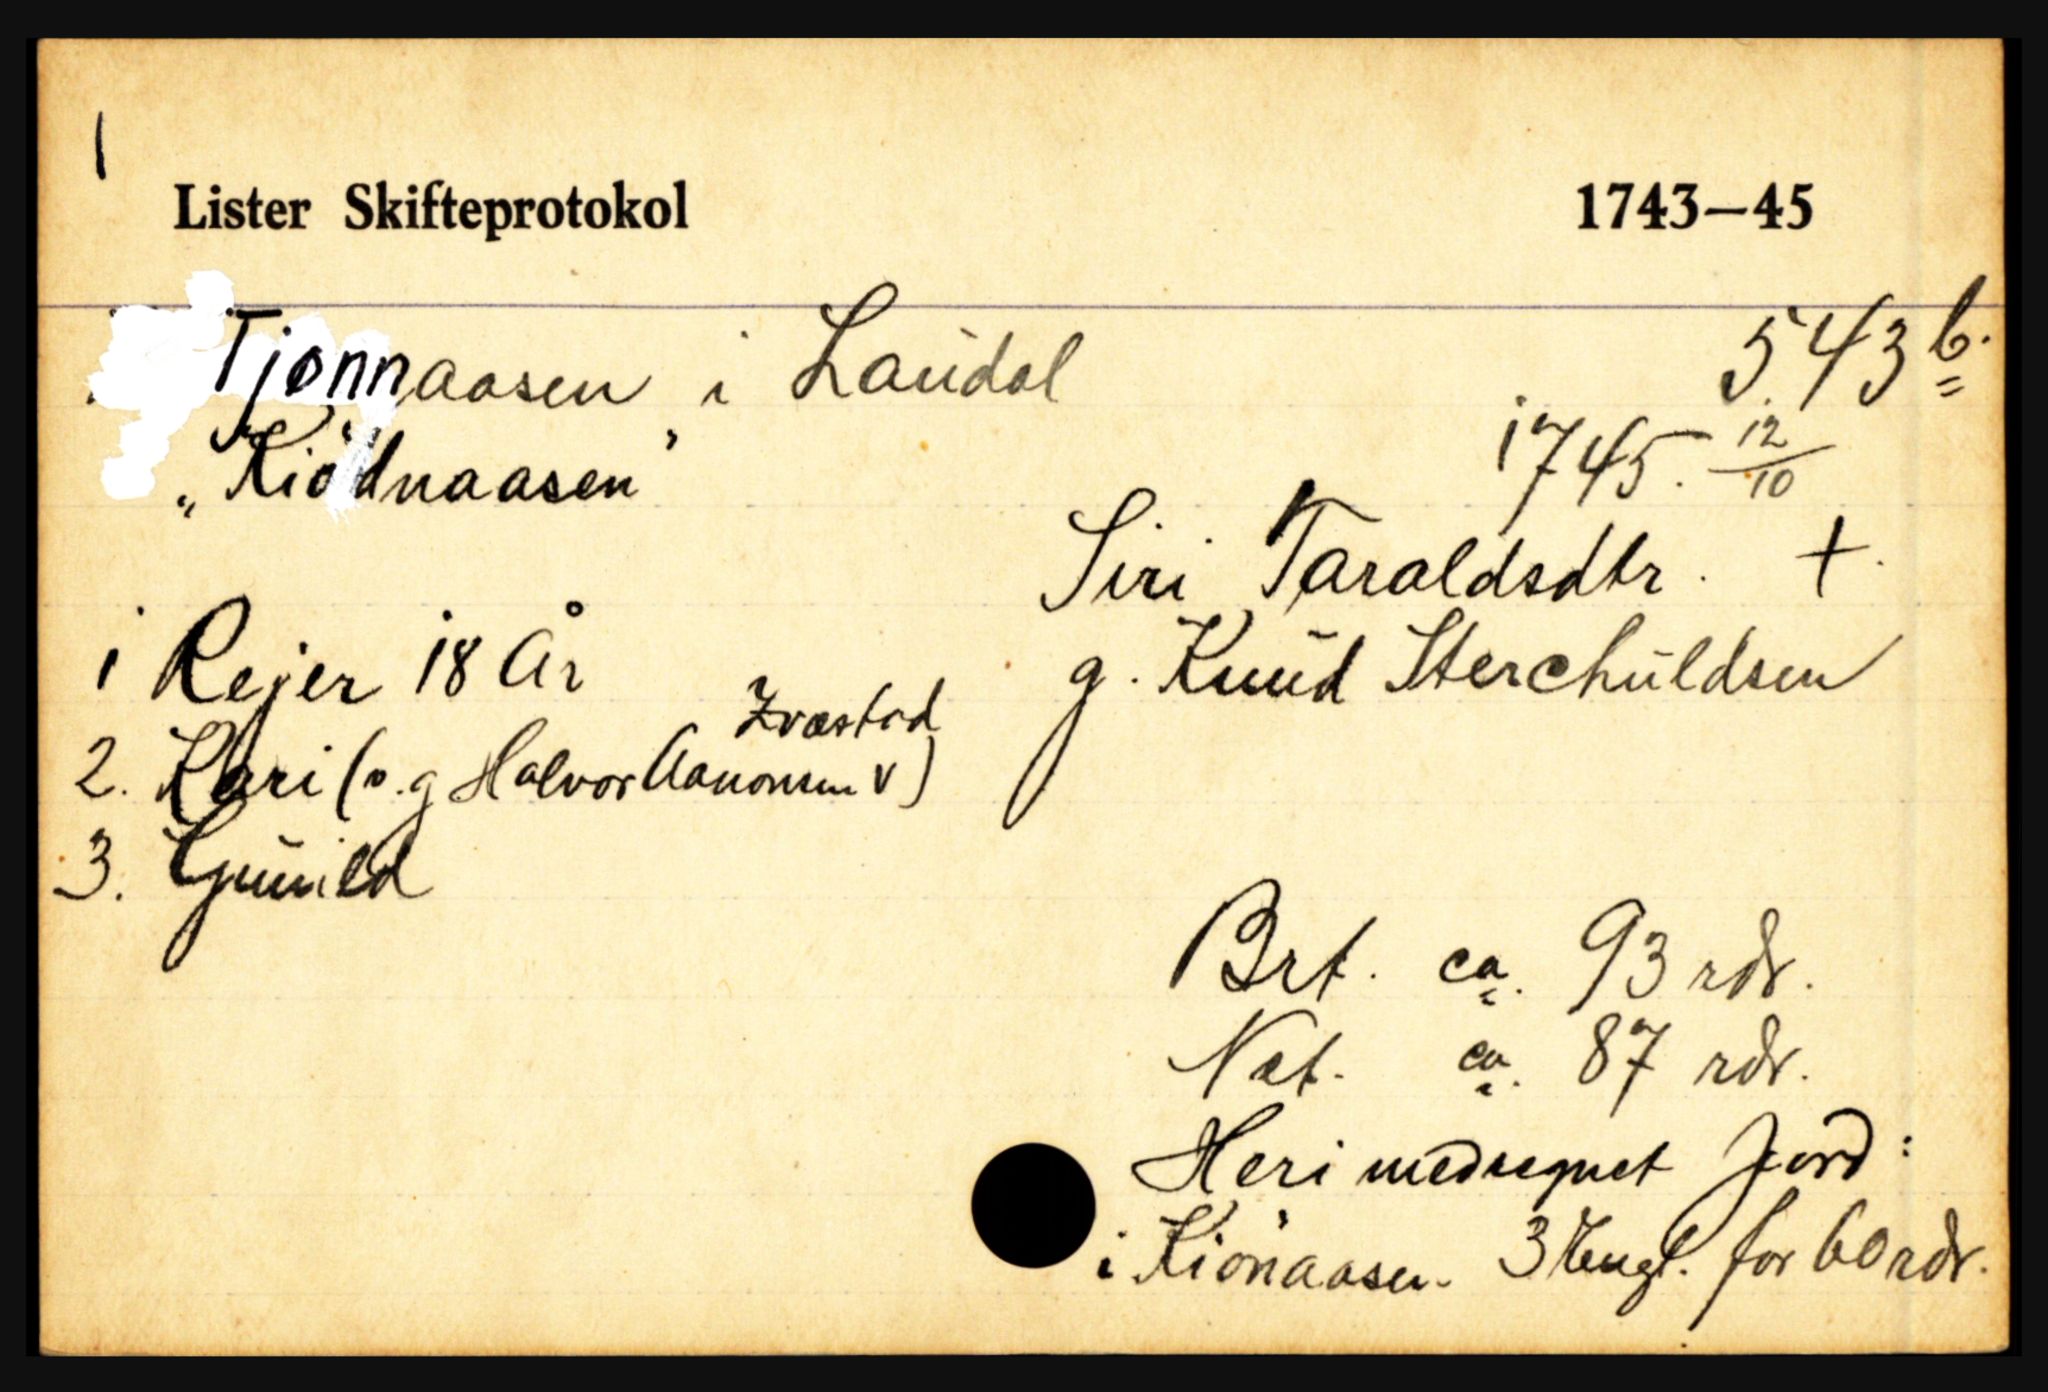 1
Lister Skifteprotokol 1743—45
Tjønnaasen i Laudal 543 b.
1745. 12/10
„Kiödnaasen”
Siri Taraldsdtr. +.
1 Rejer 18 År
g. Knud Sterchuldsen
Zvæstad
2. Kari (v. g Halvor Aanonsen v)
3. Gunild
Brt. ca. 93 rdr.
Net. ca. 87 rdr.
Heri medregnet Jord:
i Kiönaasen. 3 Engl. for 60 rdr.